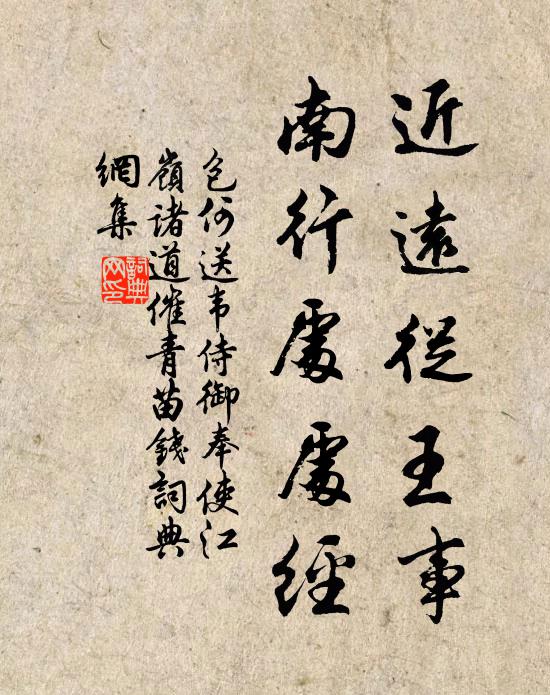 近遠從王事
南行處處經
包何送韦侍御奉使江
嶺诸道催青苗錢詞典
網集
詞典網印